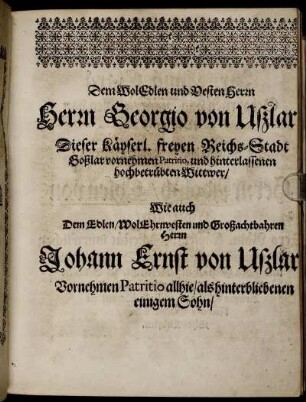 Dem WolEdlen und Vesten Herrn
Herrn Georgio von Ußlar
Dieser Käyserl. freyen Reichs-Stadt
Goßlar vornehmen Patritio, und hinterlassenen
hochbetrübten Wittwer/
Wie auch
Dem Edlen/WolEhrnvesten und Großachtbahren
Herrn
Johann Ernst von Ußlar
Vornehmen Patritio allhie/als hinterbliebenen
einigem Sohn/